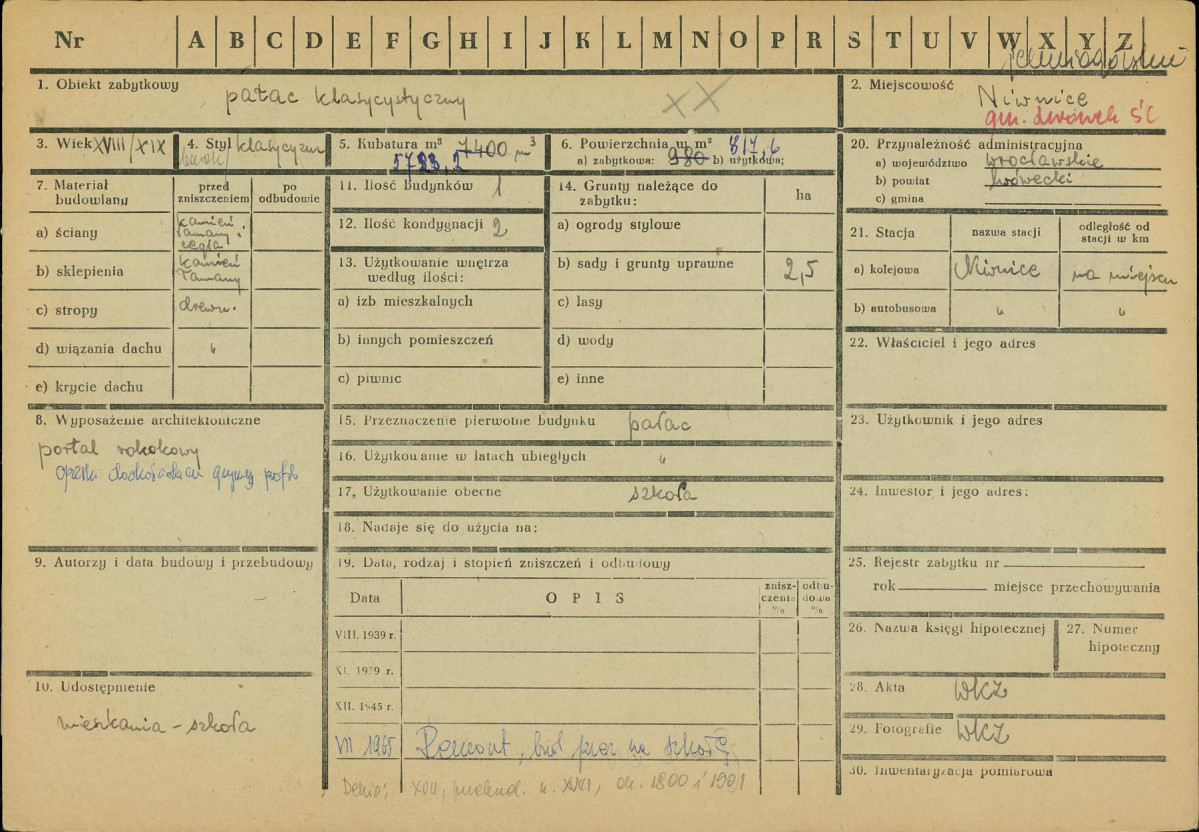 Nr A B C D E F G H I J K L M N O P R S T U V W X Y Z
jeleniogórskie
1. Obiekt zabytkowy
pałac klasycystyczny
XX
2. Miejscowość
Niwnice
gm. Lwówek Śl
3. Wiek XVIII/XIX
4. Styl klasycyzm
barok/
5. Kubatura m³ 7400 m³
5723,2
6. Powierzchnia w m² 817,6
a) zabytkowa: 980 b) użytkowa:
20. Przynależność administracyjna
a) województwo wrocławskie
b) powiat lwówecki
c) gmina
7. Materiał budowlany
przed zniszczeniem
po odbudowie
a) ściany
kamień
łamany i
cegła
b) sklepienia
kamień
łamany
c) stropy
drewn.
d) wiązania dachu "
e) krycie dachu
11. Ilość budynków 1
12. Ilość kondygnacji 2
13. Użytkowanie wnętrza
według ilości:
a) izb mieszkalnych
b) innych pomieszczeń
c) piwnic
14. Grunty należące do
zabytku:
ha
a) ogrody stylowe
b) sady i grunty uprawne 2,5
c) lasy
d) wody
e) inne
21. Stacja
nazwa stacji
odległość od
stacji w km
a) kolejowa Niwnice na miejscu
b) autobusowa " "
22. Właściciel i jego adres
8. Wyposażenie architektoniczne
portal rokokowy
15. Przeznaczenie pierwotne budynku pałac
16. Użytkowanie w latach ubiegłych "
17. Użytkowanie obecne szkoła
18. Nadaje się do użycia na:
23. Użytkownik i jego adres
24. Inwestor i jego adres:
9. Autorzy i data budowy i przebudowy
19. Data, rodzaj i stopień zniszczeń i odbudowy
Data
OPIS
znisz-
czenia
%
odbu-
dowa
%
VIII. 1939 r.
XI. 1939 r.
XII. 1945 r.
VII 1965 Remont, na szkołę
Dehio: XVII, przebud. k. XVIII, ok. 1800 i 1901
25. Rejestr zabytku nr
rok miejsce przechowywania
26. Nazwa księgi hipotecznej
27. Numer
hipoteczny
10. Udostępnienie
mieszkania – szkoła
28. Akta WKZ
29. Fotografie WKZ
30. Inwentaryzacja pomiarowa